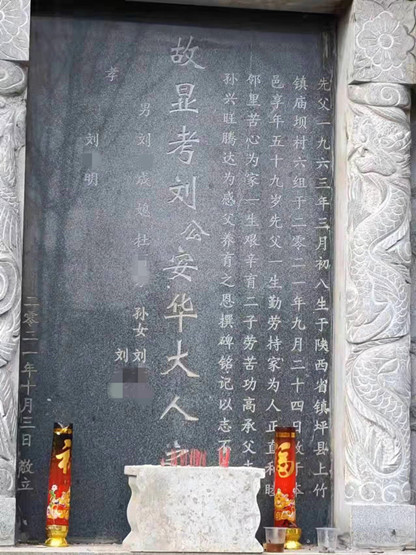 先父一九六三年三月初八生于陕西省镇坪县上竹
镇庙坝村六组于二零二一年九月二十四日
邑享年五十九岁先父一生勤劳持家为人正直和睦
邻里苦心为家一生艰辛育二子劳苦功高承父
孙兴旺腾达为感父养育之恩撰碑铭记以志不
故显考刘公安华大人
孝
男刘 成艳杜
孙女刘
刘
刘 明
二零二一年十月三日敬立
福
福